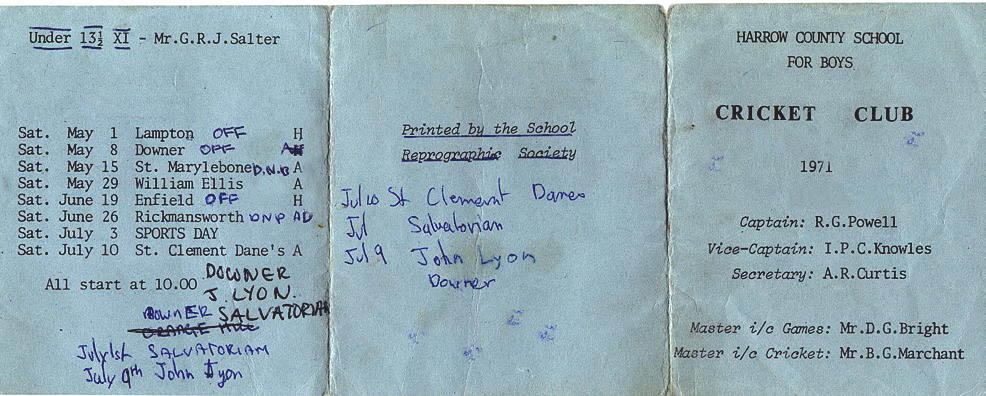 Under 13½ XI - Mr.G.R.J.Salter
Sat. May 1 Lampton OFF H
Sat. May 8 Downer OFF A
Sat. May 15 St. Marylebone D.N.B A
Sat. May 29 William Ellis A
Sat. June 19 Enfield OFF H
Sat. June 26 Rickmansworth DNP A
Sat. July 3 SPORTS DAY
Sat. July 10 St. Clement Dane's A
All start at 10.00 DOWNER
J. LYON.
DOWNER SALVATORIAN
July 1st SALVATORIAM
July 9th John Lyon
Printed by the School
Reprographic Society
Jul 10 St Clement Danes
Jul Salvatorian
Jul 9 John Lyon
Downer
HARROW COUNTY SCHOOL
FOR BOYS
CRICKET CLUB
1971
Captain: R.G.Powell
Vice-Captain: I.P.C.Knowles
Secretary: A.R.Curtis
Master i/c Games: Mr.D.G.Bright
Master i/c Cricket: Mr.B.G.Marchant